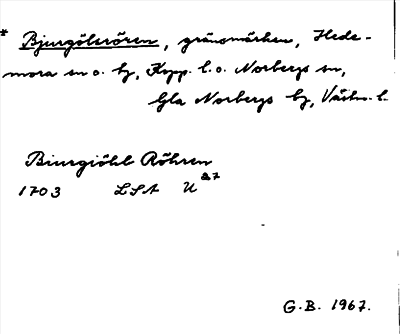 * Bjurgölsrören, gränsmärken, Hede-
mora sn o. hd, Kopp. l. o. Norbergs sn,
Gla Norbergs bg, Västm. l.
Biurgiöhls Röhren
1703 LSA U 27
G.B. 1967.